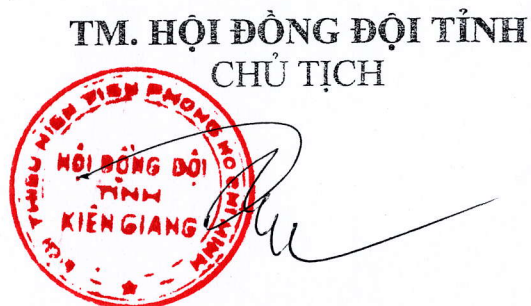 TM. HỘI ĐỒNG ĐỘI TỈNH
CHỦ TỊCH
THIẾU NIÊN TIỀN PHONG HỒ CHÍ MINH
HỘI ĐỒNG ĐỘI
TỈNH
KIÊN GIANG